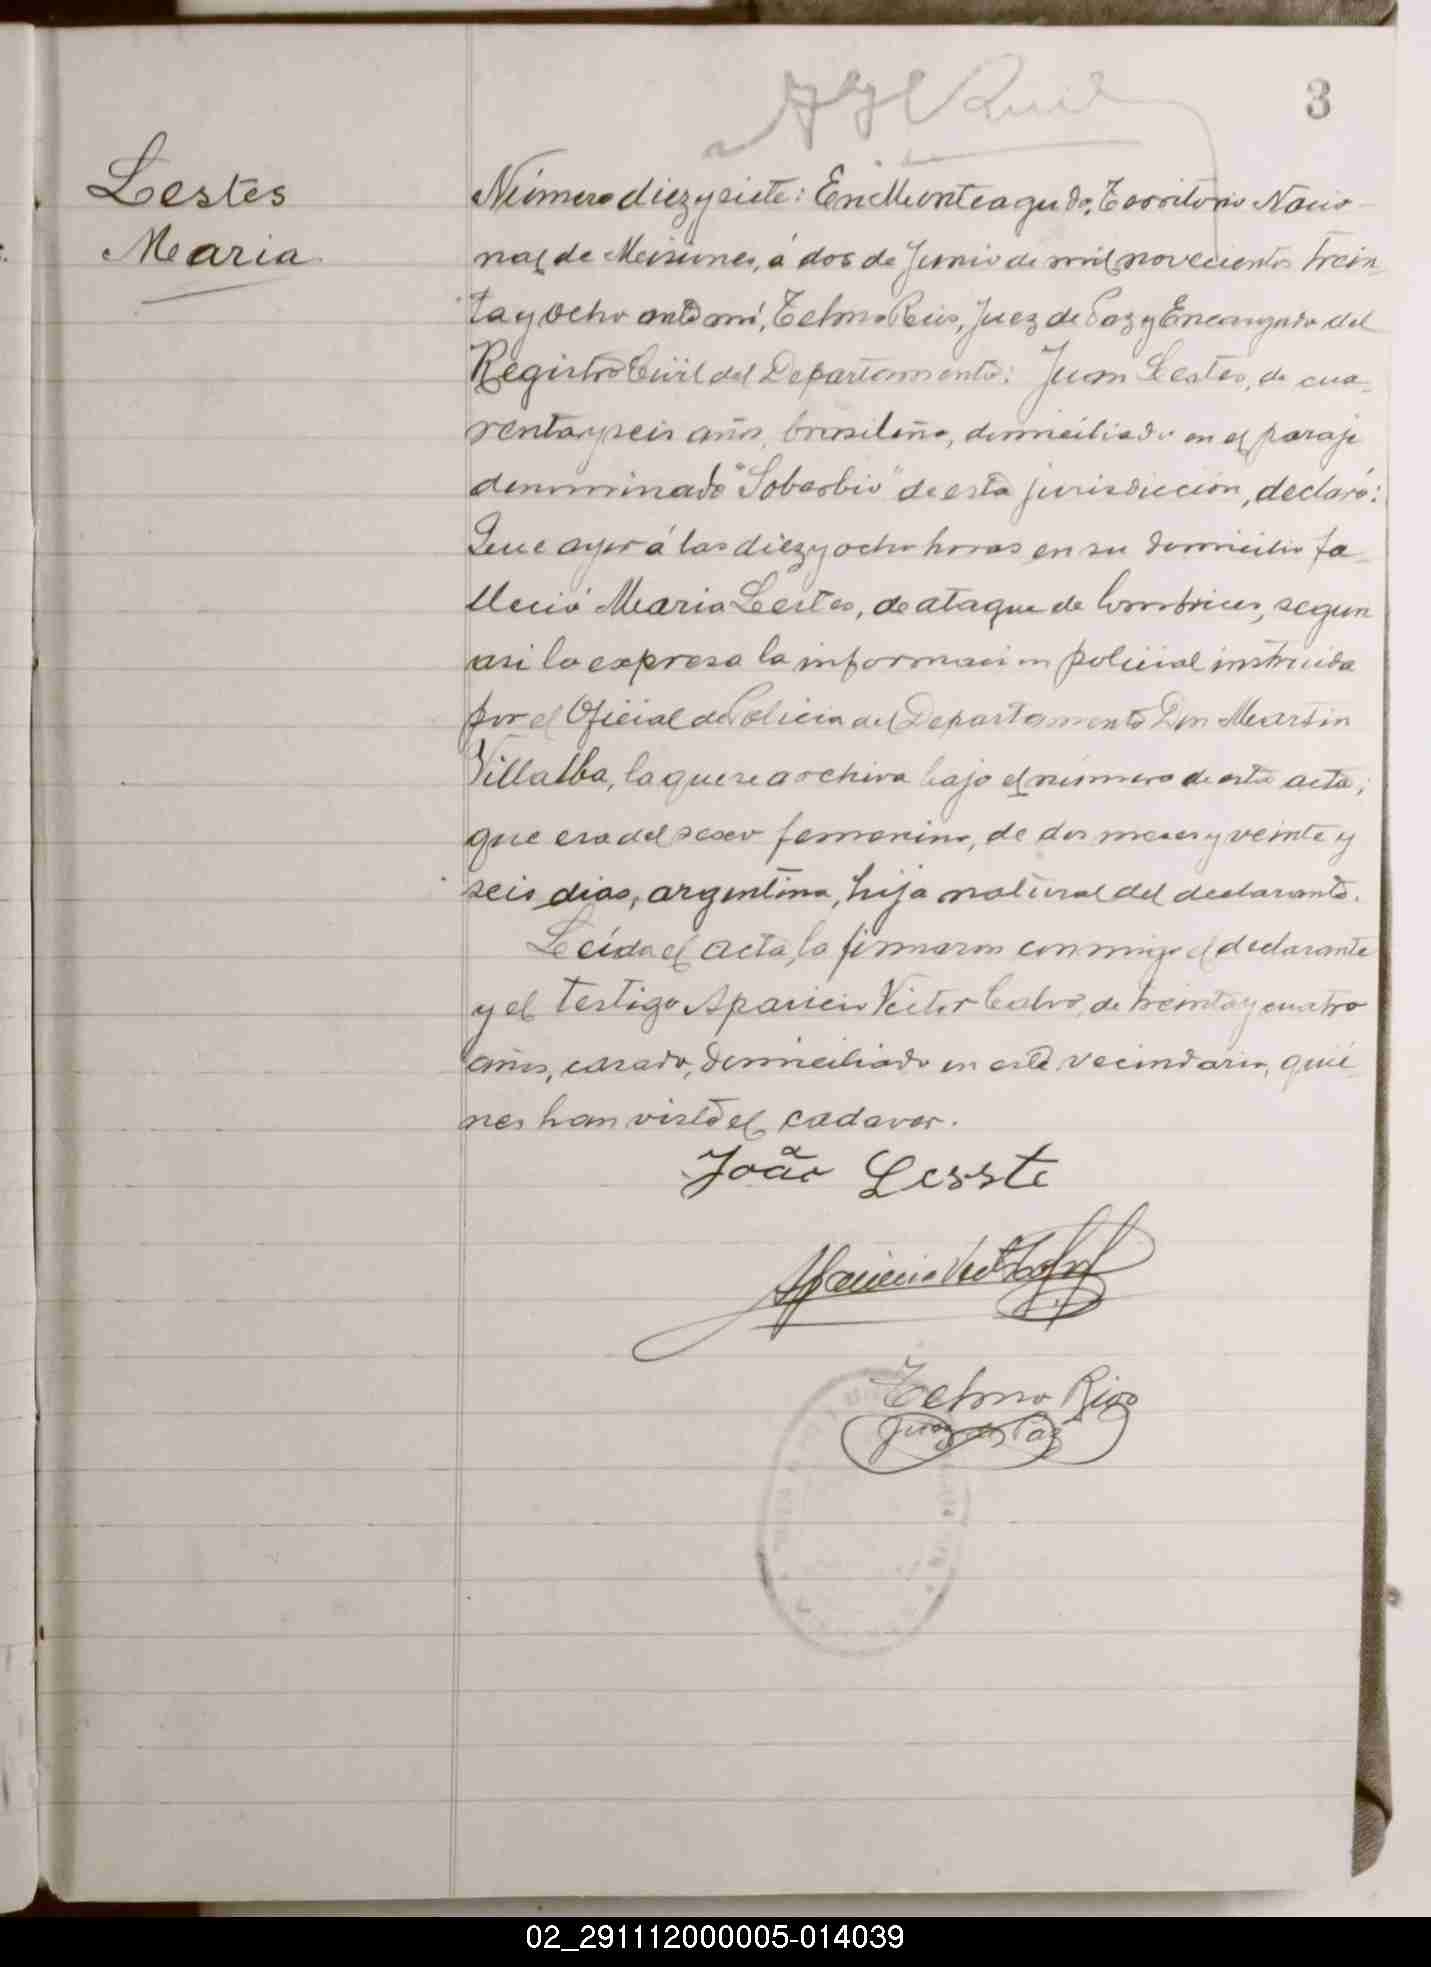 3
Lestes
Maria
Número diez y siete: En Monteagudo, Territorio Nacio-
nal de Misiones, á dos de Junio de mil novecientos trein-
ta y ocho ante mi, Telmo Rios, Juez de Paz y Encargado del
Registro Civil del Departamento: Juan Lestes, de cua-
renta y seis años, brasileño, domiciliado en el paraje
denominado "Soberbio" de esta jurisdicción, declaró:
Que ayer á las diez y ocho horas en su domicilio fa-
lleció Maria Lestes, de ataque de lombrices, segun
asi lo expresa la informacion policial instruida
por el Oficial de Policia del Departamento Don Martin
Villalba, la que se archiva bajo el número de esta acta;
que era del sexo femenino, de dos meses y veinte y
seis dias, argentina, hija natural del declarante.
Leida el acta, la firmaron conmigo el declarante
y el testigo Aparicio Victor Calvo, de treinta y cuatro
años, casado, domiciliado en este vecindario, quié-
nes han visto el cadaver.
João Lesste
Aparicio Vict
Telmo Rios
Juez de Paz
02_291112000005-014039